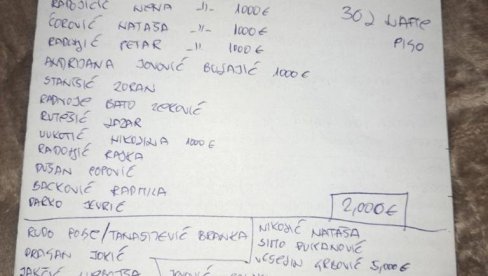 RADOJIČIĆ NENA -||- 1000 €
ĆOROVIĆ NATAŠA -||- 1000 €
RADOJIĆ PETAR -||- 1000 €
302
PISO
ANDRIJANA JOVOVIĆ 1000 €
STANIŠIĆ ZORAN
RADNOJE BATO ZEKOVIĆ
RUTEŠIĆ LAZAR
VUKOTIĆ NIKOLINA 1000 €
RADOJIĆ RAJKA
DUŠAN POPOVIĆ
BACKOVIĆ RADMILA
DARKO JEVRIĆ
2,000 €
RUDO POSE/TANASIJEVIĆ BRANKA
DRAGAN JOKIĆ
NIKOLIĆ NATAŠA
SIMO VUKANOVIĆ
VESELIN GRBOVIĆ 5,000 €